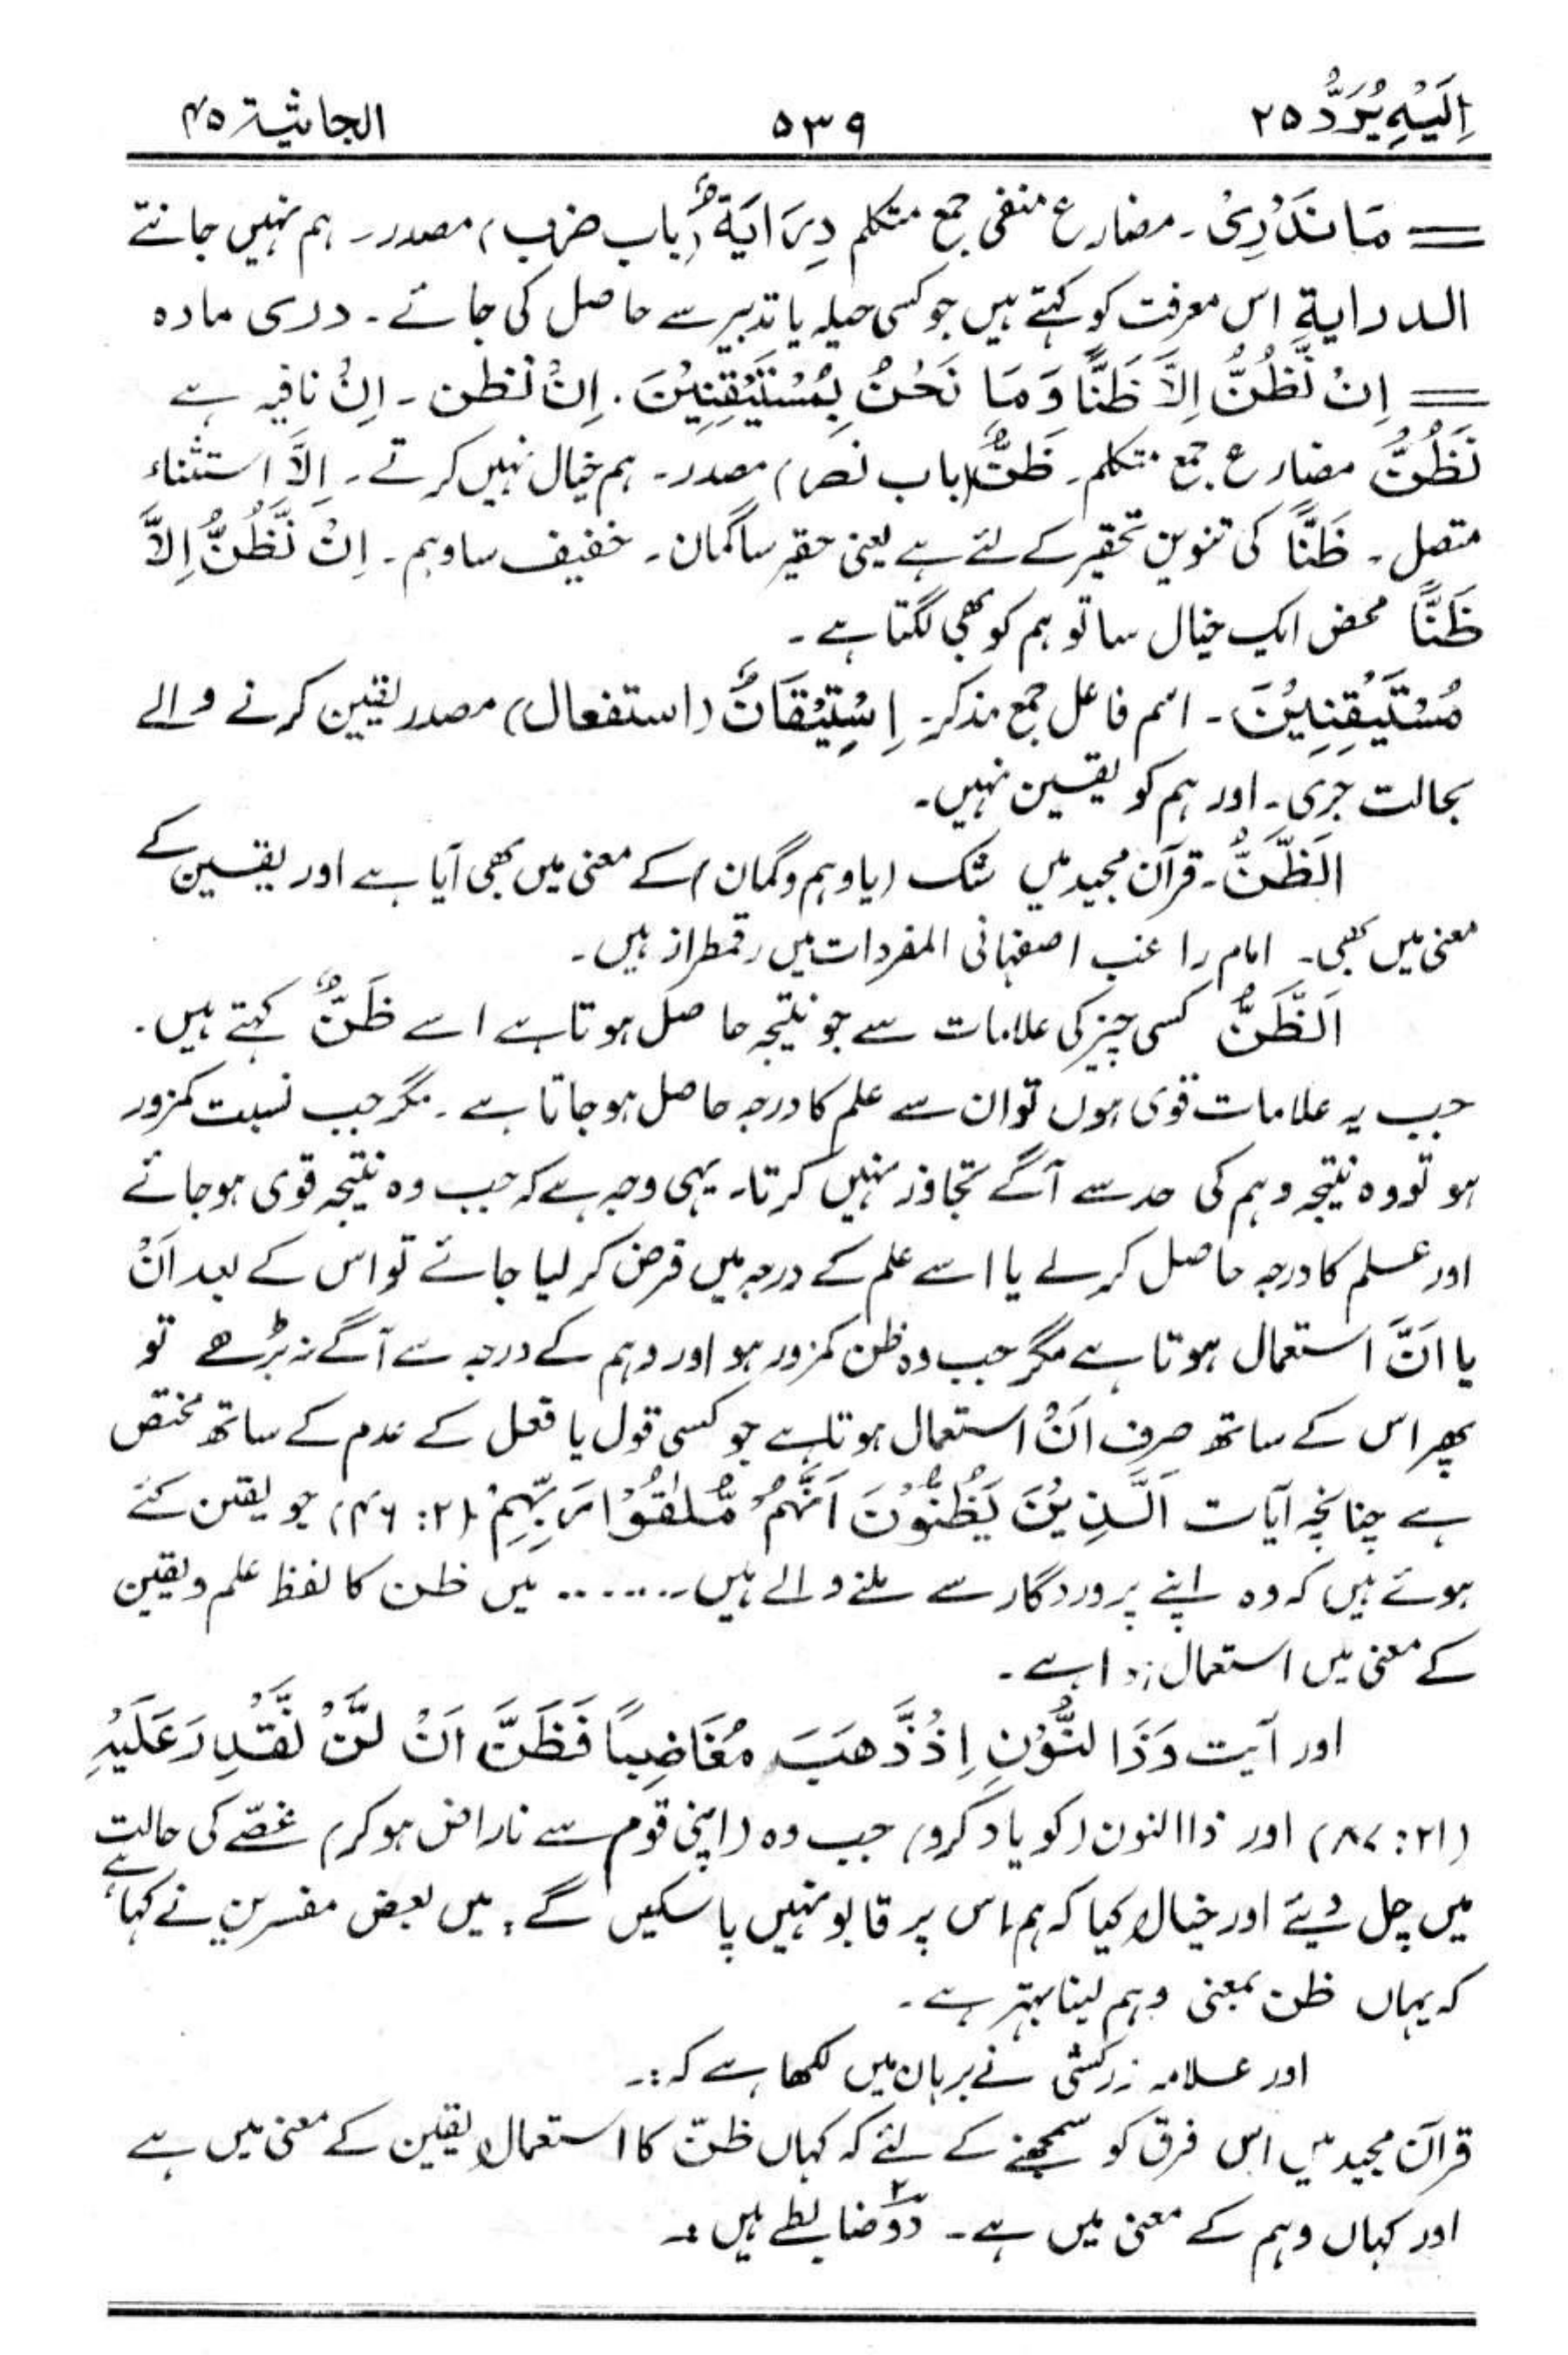 اِلَيْهِ يُرَدُّ ۲۵ ۵۳۹ الجاثية ۴۵
= مَا نَدْرِىْ۔ مضارع منفی جمع متکلم دِرَايَةٌ (باب ضرب) مصدر۔ ہم نہیں جانتے
الدراية اس معرفت کو کہتے ہیں جو کسی حیلہ یا تدبیر سے حاصل کی جائے۔ دری مادہ
= اِنْ نَّظُنُّ اِلَّا ظَنًّا وَّمَا نَحْنُ بِمُسْتَيْقِنِيْنَ۔ اِنْ نظن۔ اِنْ نافیہ ہے
نَظُنُّ مضارع جمع متکلم۔ ظَنٌّ (باب نصر) مصدر۔ ہم خیال نہیں کرتے۔ اِلَّا استثناء
متصل۔ ظَنًّا کی تنوین تحقیر کے لئے ہے یعنی حقیر سا گمان۔ خفیف سا وہم۔ اِنْ نَّظُنُّ اِلَّا
ظَنًّا محض ایک خیال سا تو ہم کو بھی لگتا ہے۔
مُسْتَيْقِنِيْنَ۔ اسم فاعل جمع مذکر۔ اِسْتِيْقَانٌ (استفعال) مصدر یقین کرنے والے
بحالت جرّی۔ اور ہم کو یقین نہیں۔
اَلظَّنُّ۔ قرآن مجید میں شک (یا وہم و گمان) کے معنی میں بھی آیا ہے اور یقین کے
معنی میں بھی۔ امام راغب اصفہانی المفردات میں رقمطراز ہیں۔
اَلظَّنُّ کسی چیز کی علامات سے جو نتیجہ حاصل ہوتا ہے اسے ظَنٌّ کہتے ہیں۔
جب یہ علامات قوی ہوں تو ان سے علم کا درجہ حاصل ہو جاتا ہے۔ مگر جب نسبت کمزور
ہو تو وہ نتیجہ وہم کی حد سے آگے تجاوز نہیں کرتا۔ یہی وجہ ہے کہ جب وہ نتیجہ قوی ہو جائے
اور علم کا درجہ حاصل کر لے یا اسے علم کے درجہ میں فرض کر لیا جائے تو اس کے بعد اَنْ
یا اَنَّ استعمال ہوتا ہے مگر جب وہ ظن کمزور ہو اور وہم کے درجہ سے آگے نہ بڑھے تو
پھر اس کے ساتھ صرف اَنْ استعمال ہوتا ہے جو کسی قول یا فعل کے عدم کے ساتھ مختص
ہے چنانچہ آیات اَلَّذِيْنَ يَظُنُّوْنَ اَنَّهُمْ مُّلٰقُوْا رَبِّهِمْ (۲: ۴۶) جو یقین کئے
ہوئے ہیں کہ وہ اپنے پروردگار سے ملنے والے ہیں۔...... میں ظن کا لفظ علم و یقین
کے معنی میں استعمال ہوا ہے۔
اور آیت وَذَا النُّوْنِ اِذْ ذَّهَبَ مُغَاضِبًا فَظَنَّ اَنْ لَّنْ نَّقْدِرَ عَلَيْهِ
(۲۱: ۸۷) اور ذاالنون (کو یاد کرو) جب وہ (اپنی قوم سے ناراض ہو کر) غصّے کی حالت
میں چل دیئے اور خیال کیا کہ ہم اس پر قابو نہیں پا سکیں گے: میں بعض مفسرین نے کہا ہے
کہ یہاں ظن بمعنی وہم لینا بہتر ہے۔
اور علامہ زرکشی نے برہان میں لکھا ہے کہ:۔
قرآن مجید میں اس فرق کو سمجھنے کے لئے کہ کہاں ظنّ کا استعمال یقین کے معنی میں ہے
اور کہاں وہم کے معنی میں ہے۔ دو۲ ضابطے ہیں:۔